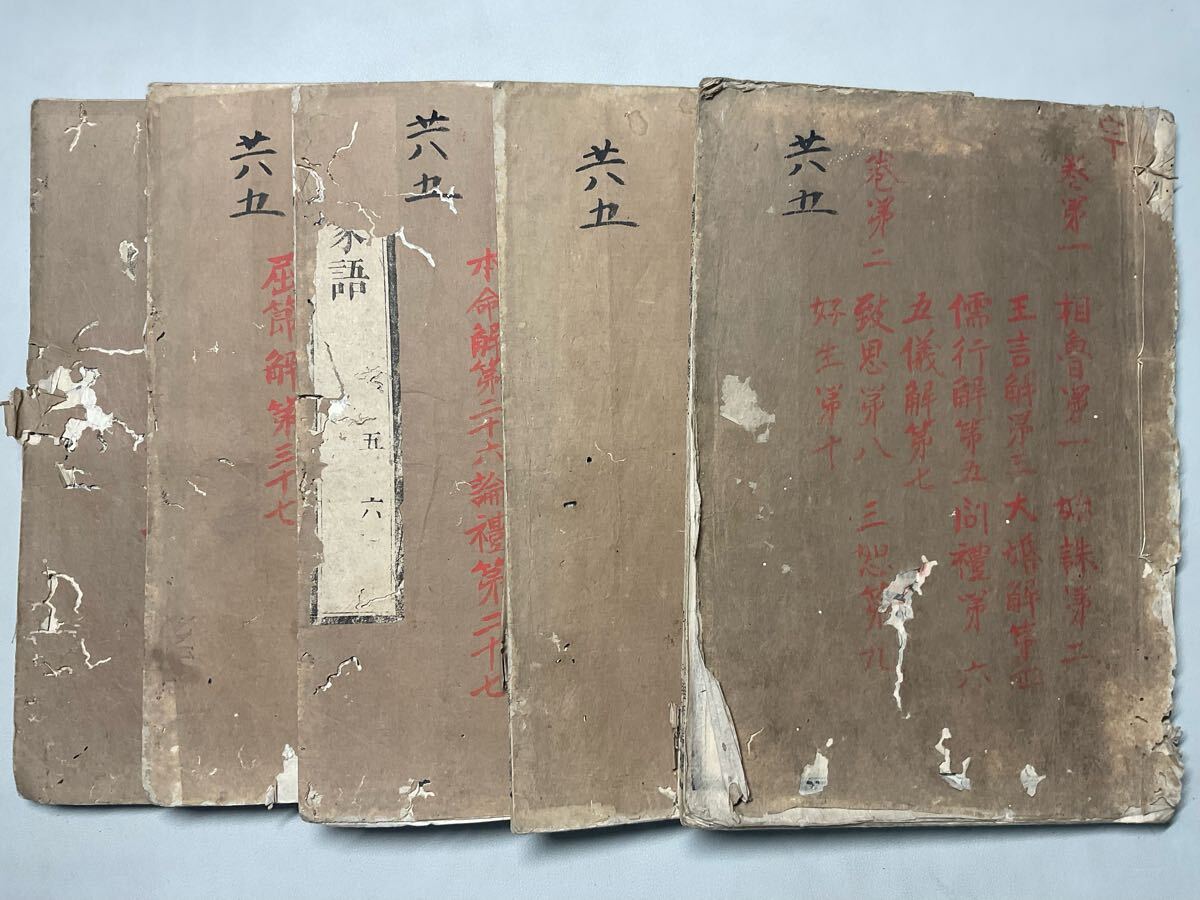 卷第一 相魯第一 始誅第二
王言解第三 大婚解第四
儒行解第五 問禮第六
五儀解第七
卷第二 致思第八 三恕第九
好生第十
共五
共五
本命解第二十六論禮第二十七
共五
家語 五 六
屈節解第三十七
共五